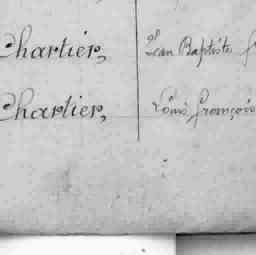 Chartier, Jean Baptiste
Chartier, Louis François